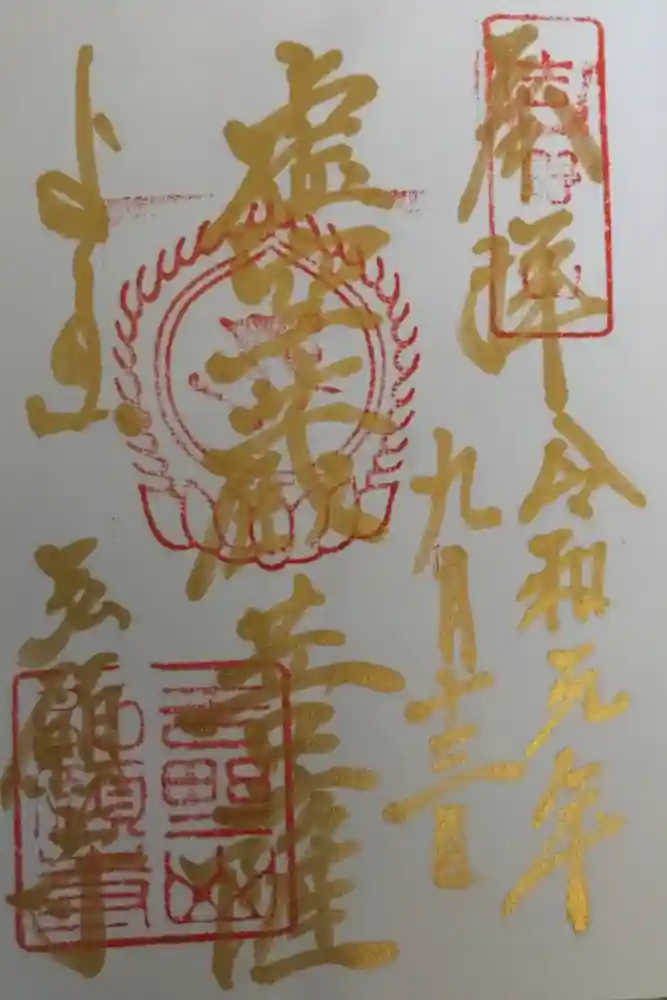 奉拝
吉野山
令和元年
九月十三日
虚空蔵菩薩
弘願寺